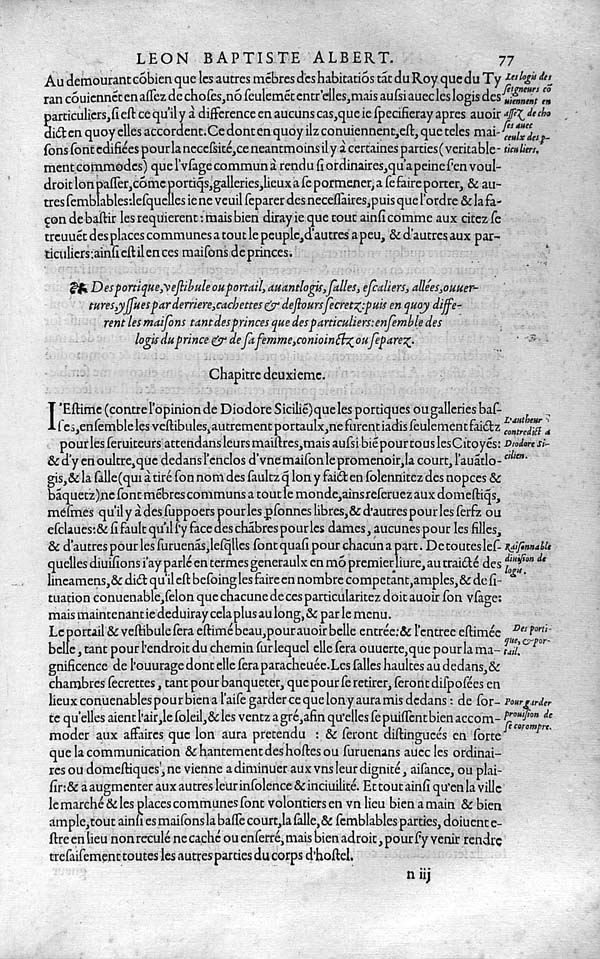 LEON BAPTISTE ALBERT. 77
Au demourant cõbien que les autres mẽbres des habitatiõs tãt du Roy que du Ty
ran cõuiennẽt en aſſez de choſes, nõ ſeulemẽt entr'elles, mais auſsi auec les logis des
particuliers, ſi eſt ce qu'il y à difference en aucuns cas, que ie ſpecifieray apres auoir
dict en quoy elles accordent. Ce dont en quoy ilz conuiennent, eſt, que teles mai-
ſons ſont edifiées pour la neceſsité, ce neantmoins il y à certaines parties (veritable-
ment commodes) que l'vſage commun à rendu ſi ordinaires, qu'a peine ſ'en voul-
droit lon paſſer, cõme portiqs, galleries, lieux a ſe pormener, a ſe faire porter, & au-
tres ſemblables: leſquelles ie ne veuil ſeparer des neceſſaires, puis que l'ordre & la fa-
çon de baſtir les requierent: mais bien diray ie que tout ainſi comme aux citez ſe
treuuẽt des places communes a tout le peuple, d'autres a peu, & d'autres aux par-
ticuliers: ainſi eſt il en ces maiſons de princes.
Les logis des
ſeigneurs cõ
uiennent en
aſſez de cho
ſes auec
ceulx des p-
ticuliers.
Des portique, veſtibule ou portail, auantlogis, ſalles, eſcaliers, allées, ouuer-
tures, yſſues par derriere, cachettes & deſtours ſecretz: puis en quoy diffe-
rent les maiſons tant des princes que des particuliers: enſemble des
logis du prince & de ſa femme, conioinctz ou ſeparez.
Chapitre deuxieme.
I'Eſtime (contre l'opinion de Diodore Siciliẽ) que les portiques ou galleries baſ-
ſes, enſemble les veſtibules, autrement portaulx, ne furent iadis ſeulement faictz
pour les ſeruiteurs attendans leurs maiſtres, mais auſsi biẽ pour tous les Citoyẽs:
& d'y en oultre, que dedans l'enclos d'vne maiſon le promenoir, la court, l'auãtlo-
gis, & la ſalle (qui à tiré ſon nom des ſaultz q̃ lon y faict en ſolennitez des nopces &
bãquetz) ne ſont mẽbres communs a tout le monde, ains reſeruez aux domeſtiq̃s,
meſmes qu'il y à des ſuppoers pour les pſonnes libres, & d'autres pour les ſerfz ou
eſclaues: & ſi fault qu'il ſ'y face des chãbres pour les dames, aucunes pour les filles,
& d'autres pour les ſuruenãs, leſq̃lles ſont quaſi pour chacun a part. De toutes leſ-
quelles diuiſions i'ay parlé en termes generaulx en mõ premier liure, au traicté des
lineamens, & dict qu'il eſt beſoing les faire en nombre competant, amples, & de ſi-
tuation conuenable, ſelon que chacune de ces particularitez doit auoir ſon vſage:
mais maintenant ie deduiray cela plus au long, & par le menu.
L'autheur
contredict a
Diodore Si-
cilien.
Raiſonnable
diuiſion de
logis.
Le portail & veſtibule ſera eſtimé beau, pour auoir belle entrée: & l'entree eſtimée
belle, tant pour l'endroit du chemin ſur lequel elle ſera ouuerte, que pour la ma-
gnificence de l'ouurage dont elle ſera paracheuée. Les ſalles haultes au dedans, &
chambres ſecrettes, tant pour banqueter, que pour ſe retirer, ſeront diſpoſées en
lieux conuenables pour bien a l'aiſe garder ce que lon y aura mis dedans: de ſor-
te qu'elles aient l'air, le ſoleil, & les ventz a gré, afin qu'elles ſe puiſſent bien accom-
moder aux affaires que lon aura pretendu : & ſeront diſtinguées en ſorte
que la communication & hantement des hoſtes ou ſuruenans auec les ordinai-
res ou domeſtiques, ne vienne a diminuer aux vns leur dignité, aiſance, ou plai-
ſir: & a augmenter aux autres leur inſolence & inciuilité. Et tout ainſi qu'en la ville
le marché & les places communes ſont volontiers en vn lieu bien a main & bien
ample, tout ainſi es maiſons la baſſe court, la ſalle, & ſemblables parties, doiuent e-
ſtre en lieu non reculé ne caché ou enſerré, mais bien adroit, pour ſ'y venir rendre
treſaiſement toutes les autres parties du corps d'hoſtel.
Des porti-
que, & por-
tail.
Pour garder
prouiſion de
ſe corompre.
n iij